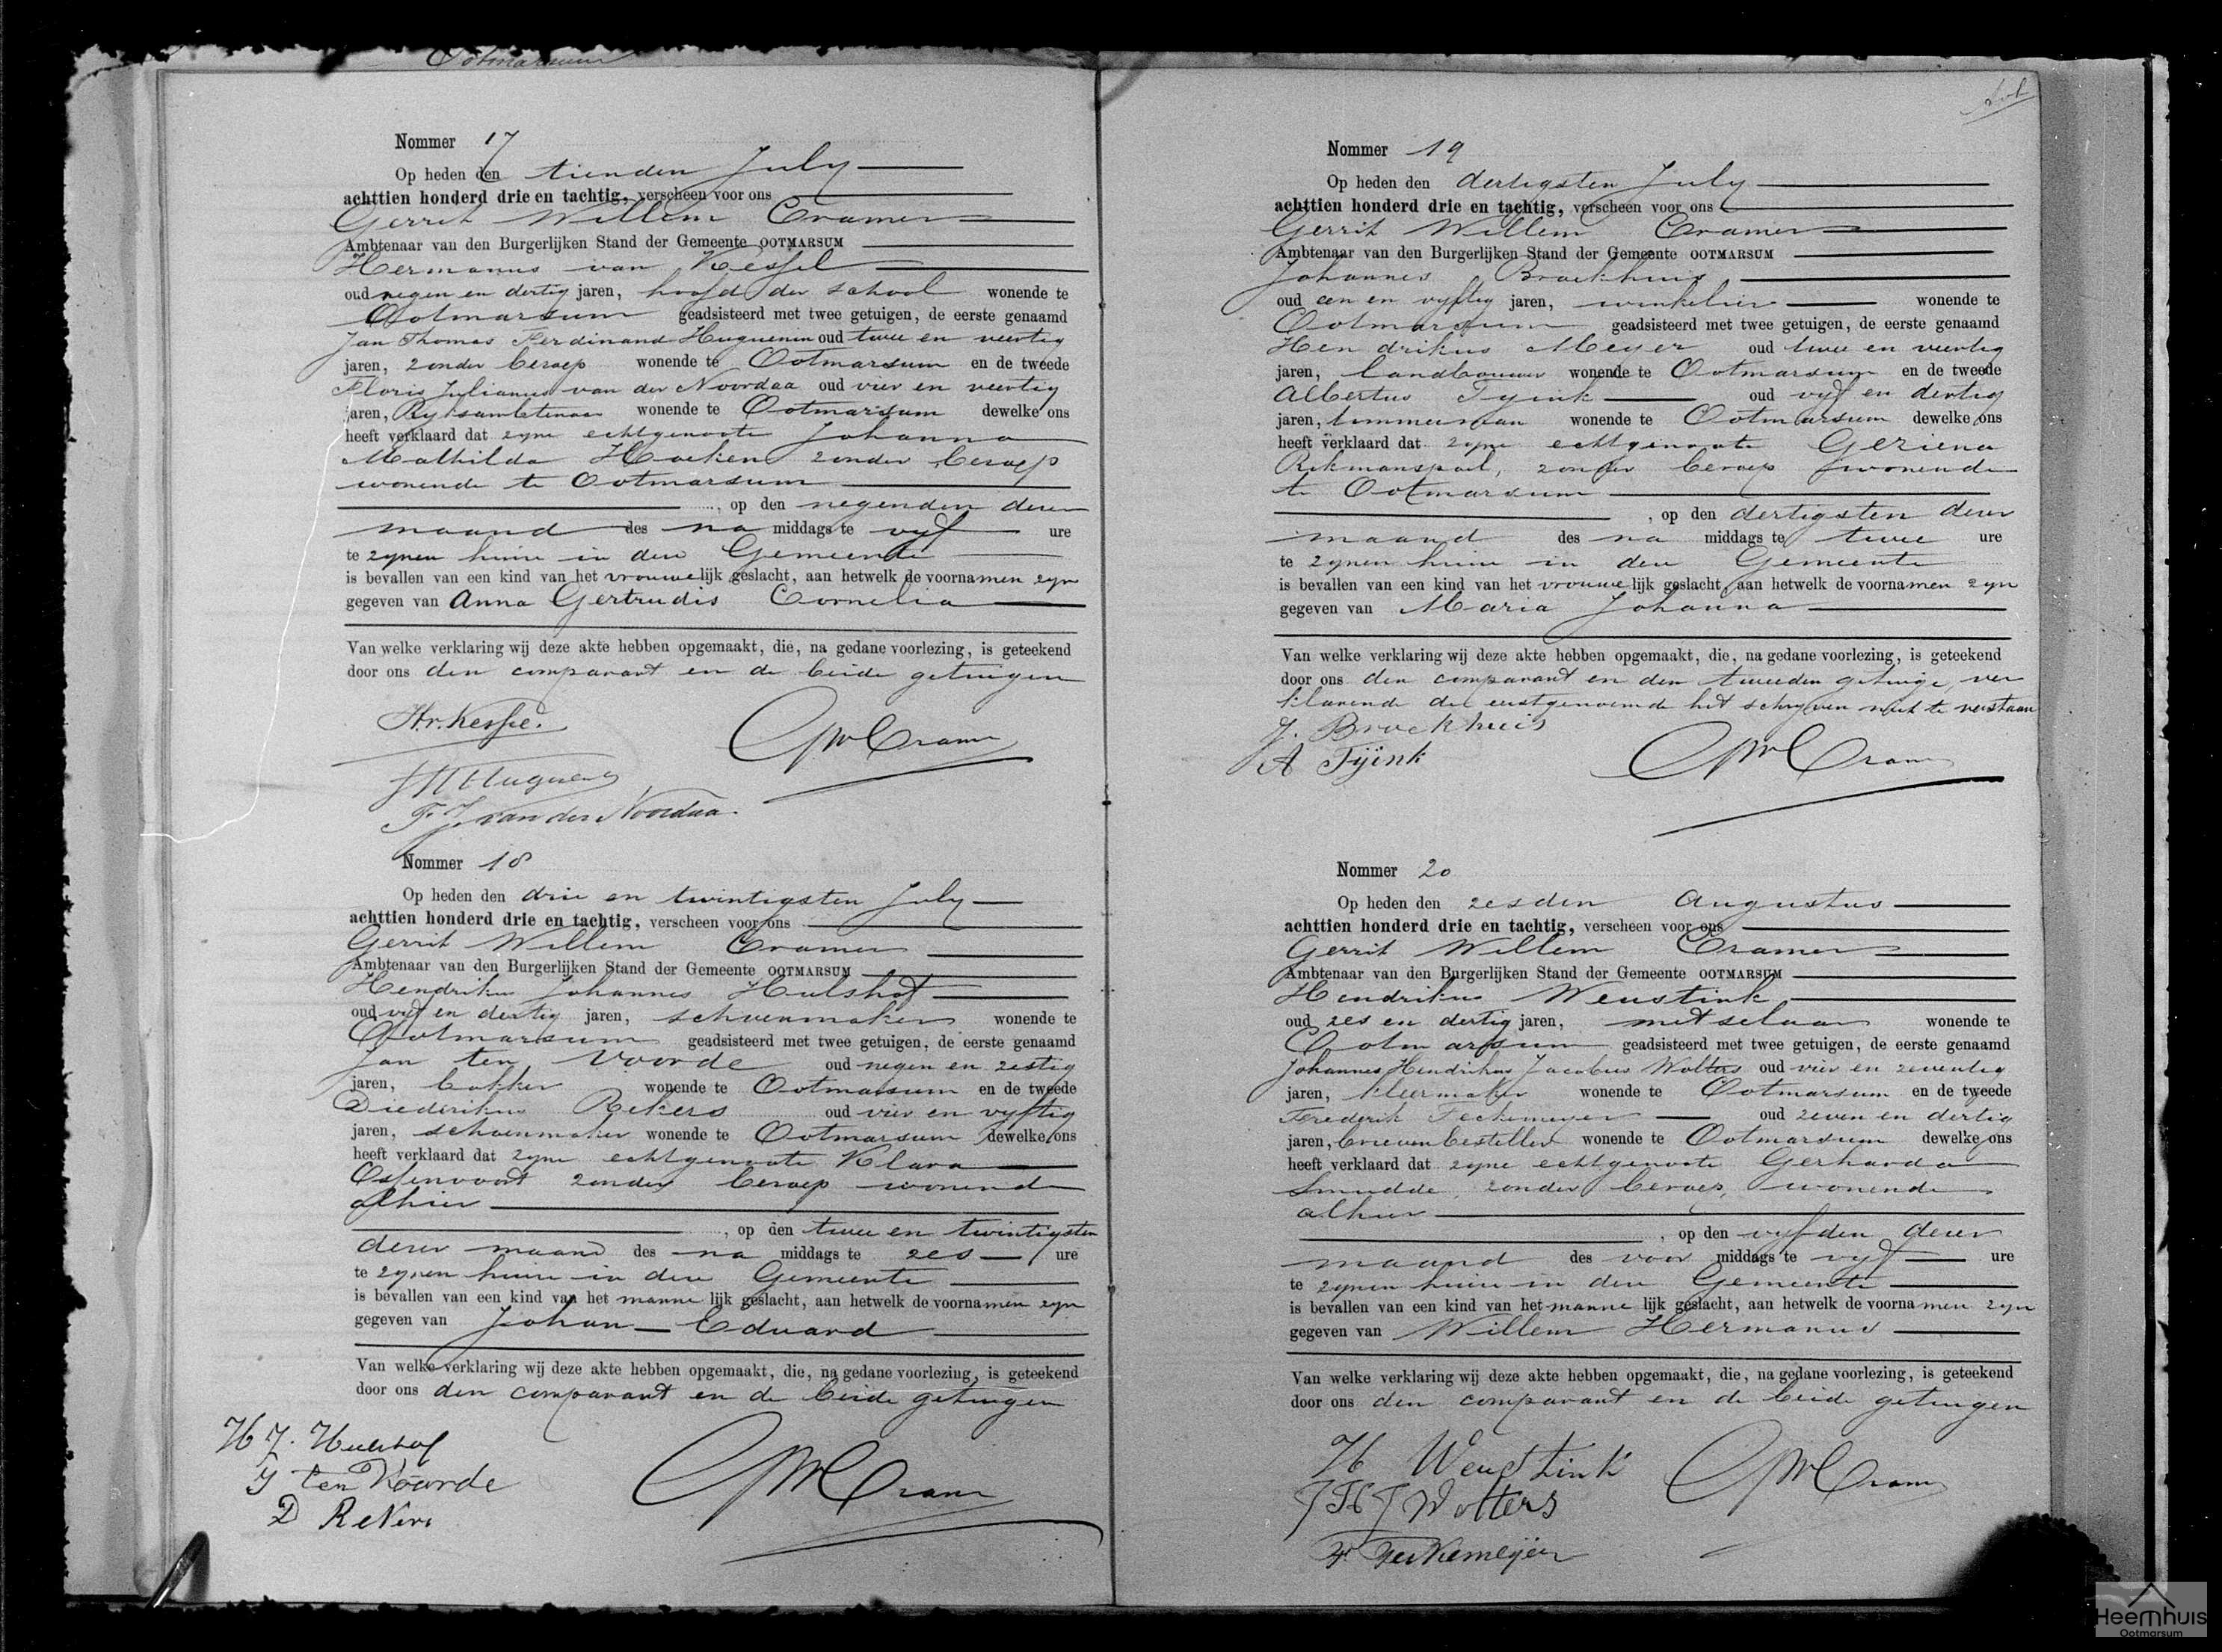 Ootmarsum
Nommer 17
Op heden den tienden July
achttien honderd drie en tachtig, verscheen voor ons
Gerrit Willem Cramer
Ambtenaar van den Burgerlijken Stand der Gemeente OOTMARSUM
Hermanus van Kessel
oud negen en dertig jaren, hoofd der school wonende te
Ootmarsum geadsisteerd met twee getuigen, de eerste genaamd
Jan Thomas Ferdinand Huguenin oud twee en veertig
jaren, zonder beroep wonende te Ootmarsum en de tweede
Floris Julianus van der Noordaa oud vier en veertig
jaren, Ryksambtenaar wonende te Ootmarsum dewelke ons
heeft verklaard dat zyne echtgenoote Johanna
Mathilda Hoeken zonder beroep
wonende te Ootmarsum
, op den negenden dezer
maand des na middags te vyf ure
te zynen huize in deze Gemeente
is bevallen van een kind van het vrouwelijk geslacht, aan hetwelk de voornamen zyn
gegeven van Anna Gertrudis Cornelia
Van welke verklaring wij deze akte hebben opgemaakt, die, na gedane voorlezing, is geteekend
door ons den comparant en de beide getuigen
H. v. Kessel.
GW Cramer
F. J. van der Noordaa.
Nommer 18
Op heden den drie en twintigsten July
achttien honderd drie en tachtig, verscheen voor ons
Gerrit Willem Cramer
Ambtenaar van den Burgerlijken Stand der Gemeente OOTMARSUM
Hendrikus Johannes Hulshof
oud vyf en dertig jaren, schoenmaker wonende te
Ootmarsum geadsisteerd met twee getuigen, de eerste genaamd
Jan ten Voorde oud negen en zestig
jaren, bakker wonende te Ootmarsum en de tweede
Diederikus Rekers oud vier en vyftig
jaren, schoenmaker wonende te Ootmarsum dewelke ons
heeft verklaard dat zyne echtgenoote Klara
Ossenvoort zonder beroep wonende
alhier
, op den twee en twintigsten
dezer maand des na middags te zes ure
te zynen huize in deze Gemeente
is bevallen van een kind van het mannelijk geslacht, aan hetwelk de voornamen zyn
gegeven van Johan Eduard
Van welke verklaring wij deze akte hebben opgemaakt, die, na gedane voorlezing, is geteekend
door ons den comparant en de beide getuigen
H J. Hulshof
J ten Voorde
D Rekers
GW Cramer
Nommer 19
Op heden den dertigsten July
achttien honderd drie en tachtig, verscheen voor ons
Gerrit Willem Cramer
Ambtenaar van den Burgerlijken Stand der Gemeente OOTMARSUM
Johannes Broekhuis
oud een en vyftig jaren, winkelier wonende te
Ootmarsum geadsisteerd met twee getuigen, de eerste genaamd
Hendrikus Meyer oud twee en veertig
jaren, landbouwer wonende te Ootmarsum en de tweede
Albertus Tyink oud vyf en dertig
jaren, timmerman wonende te Ootmarsum dewelke ons
heeft verklaard dat zyne echtgenoote Geziena
Rekmanspoel, zonder beroep wonende
te Ootmarsum
, op den dertigsten dezer
maand des na middags te twee ure
te zynen huize in deze Gemeente
is bevallen van een kind van het vrouwelijk geslacht, aan hetwelk de voornamen zyn
gegeven van Maria Johanna
Van welke verklaring wij deze akte hebben opgemaakt, die, na gedane voorlezing, is geteekend
door ons den comparant en den tweeden getuige, ver
klarende de eerstgenoemde het schryven niet te verstaan
J. Broekhuis
A Tyink
GW Cramer
Nommer 20
Op heden den zesden Augustus
achttien honderd drie en tachtig, verscheen voor ons
Gerrit Willem Cramer
Ambtenaar van den Burgerlijken Stand der Gemeente OOTMARSUM
Hendrikus Weustink
oud zes en dertig jaren, metselaar wonende te
Ootmarsum geadsisteerd met twee getuigen, de eerste genaamd
Johannes Hendrikus Jacobus Wolters oud vier en zeventig
jaren, kleermaker wonende te Ootmarsum en de tweede
Frederik Feckemeyer oud zeven en dertig
jaren, brievenbesteller wonende te Ootmarsum dewelke ons
heeft verklaard dat zyne echtgenoote Gerharda
Smudde, zonder beroep, wonende
alhier
, op den vyfden dezer
maand des voor middags te vyf ure
te zynen huize in deze Gemeente
is bevallen van een kind van het mannelijk geslacht, aan hetwelk de voornamen zyn
gegeven van Willem Hermanus
Van welke verklaring wij deze akte hebben opgemaakt, die, na gedane voorlezing, is geteekend
door ons den comparant en de beide getuigen
H Weustink
J H J Wolters
F. Feckemeijer
GW Cramer
Heemhuis
Ootmarsum